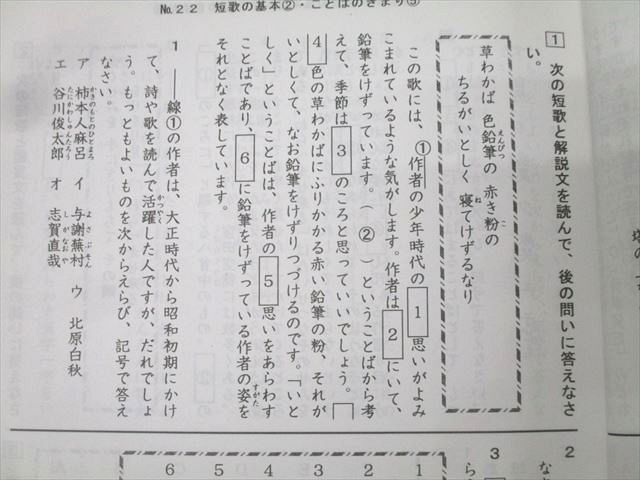 №22 短歌の基本②・ことばのきまり⑤
1 次の短歌と解説文を読んで、後の問いに答えなさ
い。
草わかば 色鉛筆の 赤き粉の
ちるがいとしく 寝てけずるなり
この歌には、①作者の少年時代の1思いがよみ
こまれているような気がします。作者は2にいて、
鉛筆をけずっています。（②）ということばから考
えて、季節は3のころと思っていいでしょう。
4色の草わかばにふりかかる赤い鉛筆の粉、それが
いとしくて、なお鉛筆をけずりつづけるのです。「いと
しく」ということばは、作者の5思いをあらわす
ことばであり、6に鉛筆をけずっている作者の姿を
それとなく表しています。
1 ――線①の作者は、大正時代から昭和初期にかけ
て、詩や歌を読んで活躍した人ですが、だれでしょ
う。もっともよいものを次からえらび、記号で答え
なさい。
ア 柿本人麻呂 イ 与謝蕪村 ウ 北原白秋
エ 谷川俊太郎 オ 志賀直哉
2
な
3
ら
1
2
3
4
5
6